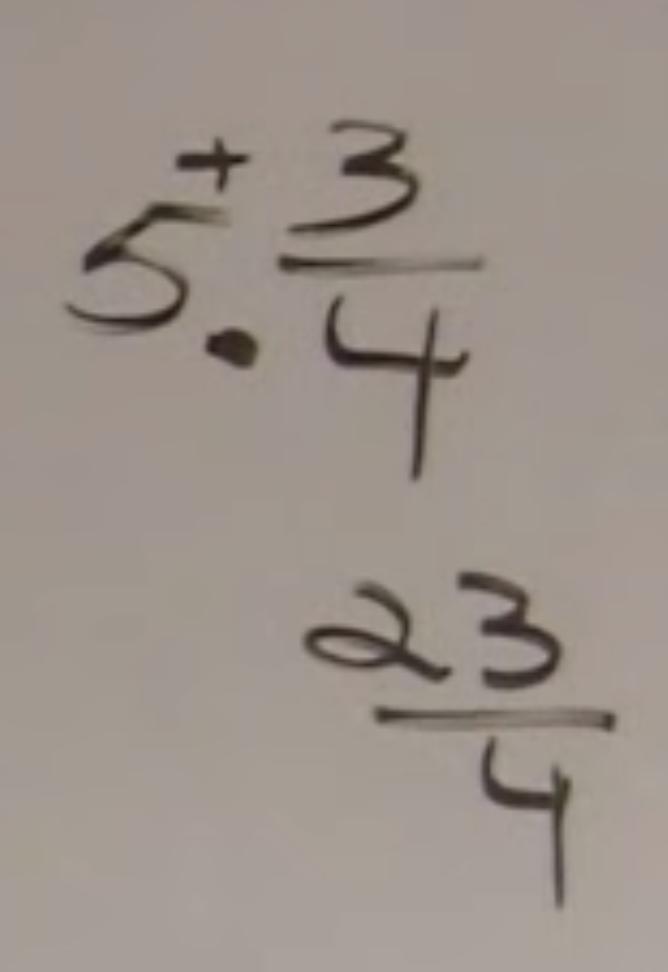 5 + . 3/4
23/4